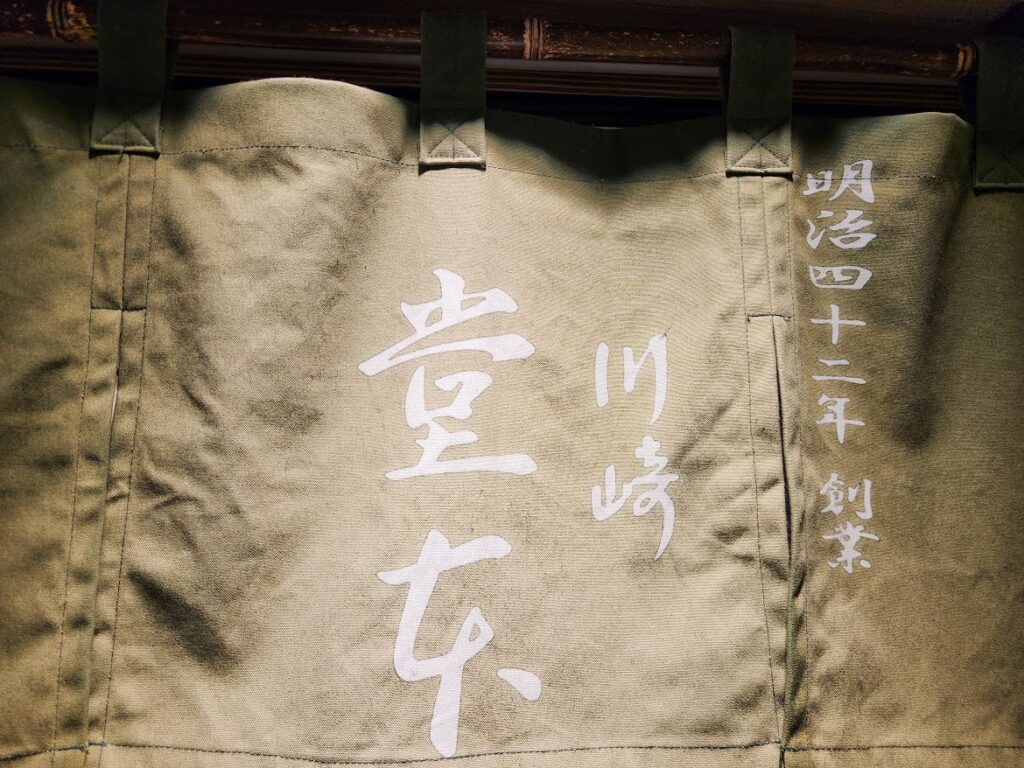 明治四十二年 創業
川崎
堂本